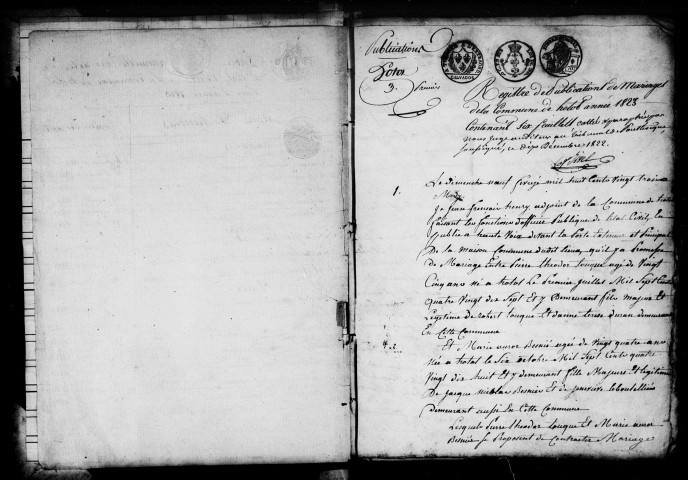 Publications
Totes
3. 
Registre de Publications de Mariages
de la Commune de totes année 1823
Contenant six feuillets cotés et paraphés par
nous juge
soussigné, ce dix Décembre 1822.
1.
Le dimanche neuf février mil huit Cents Vingt trois a
Midy
Je jean francois henry adjoint de la Commune de
faisant les fonctions d'officier Publique de letat Civil, ai
Publié a haute Voix devant la Porte Exterieure et Principal
De la maison Commune dudit lieu, qu'il y a Promesse
de Mariage Entre Pierre theodor Louque agé de Vingt
Cinq ans né a totes Le Premier juillet Mil Sept Cents
quatre Vingt dix Sept Et y Demeurant fils majeur Et
Legitime de Louque Et danne demeurant
En Cette Commune
Et Marie auror Besnié agée de Vingt quatre ans
née a totes le Six octobre Mil Sept Cents quatre
Vingt dix huit Et y demeurant fille Majeure Et legitime
De jacque nicolas Besnier Et de genevieve leboutellier
demeurant aussi En Cette Commune
Lesquels Pierre theodor Louque Et Marie auror
Besnier se Proposent de Contracter Mariage